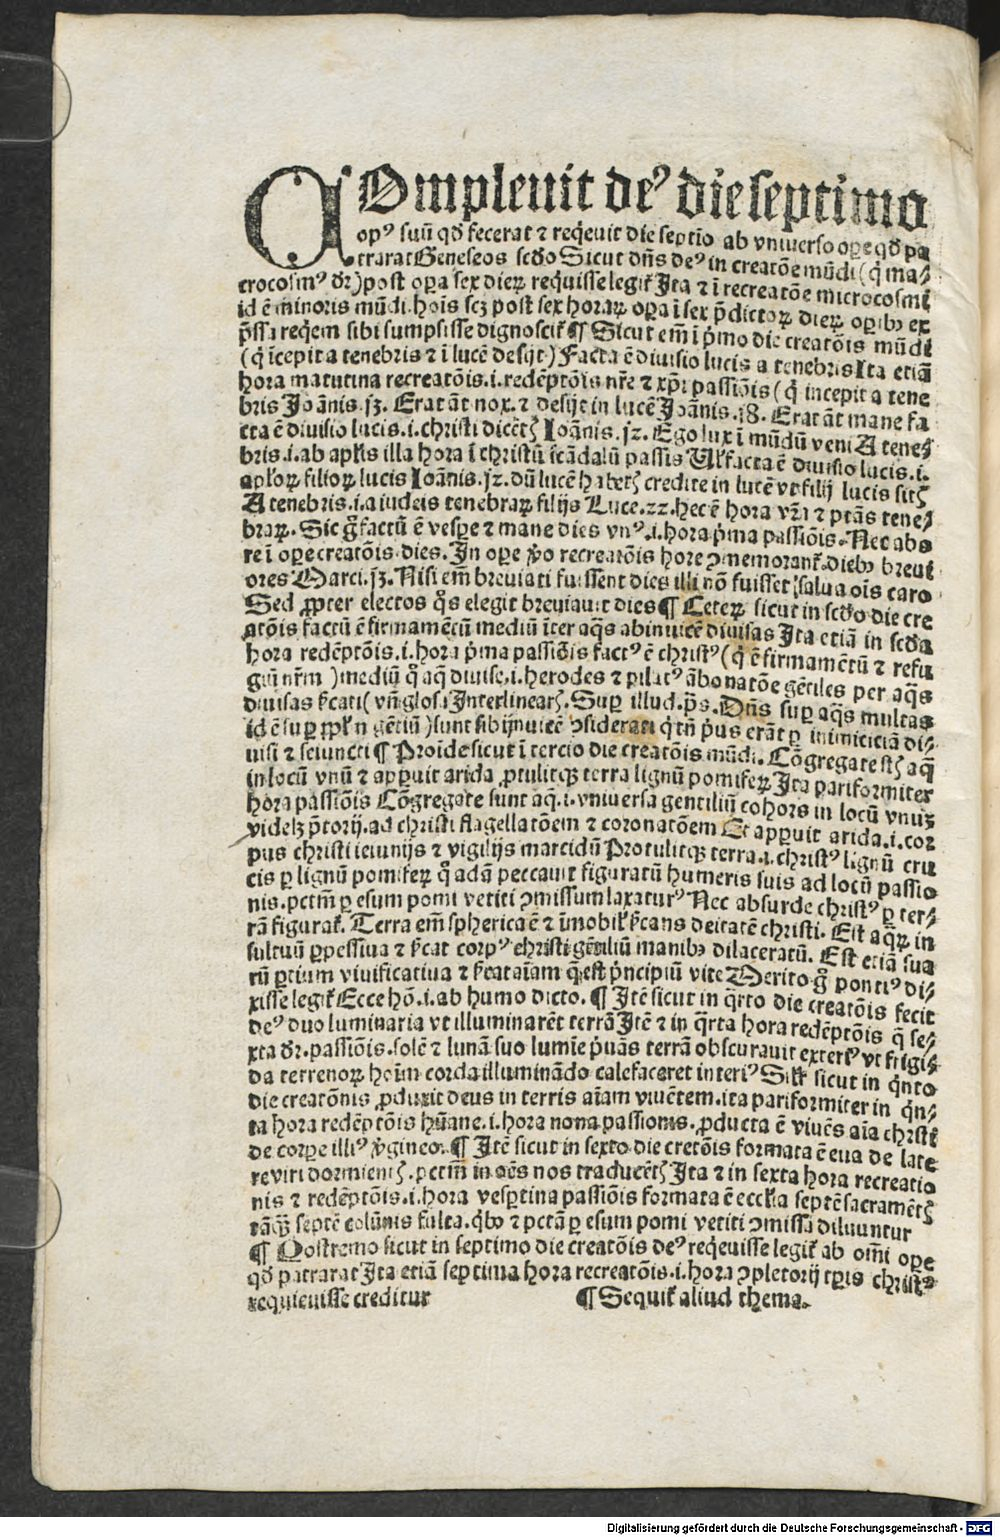 COmpleuit deꝰ die septimo
opꝰ suū qd̄ fecerat ⁊ reqͥeuit die septīo ab vniuerso oꝑe qd̄ pa
trarat Geneseos scd̄o Sicut dn̄s deꝰ in creatōe mūdi (qͥ ma⸗
crocosmꝰ dꝛ) post oꝑa sex dieꝝ requisse legitͥ Ita ⁊ ī recreatōe microcosmi
id ē minoris mūdi. hoīs scꝫ post sex horaꝝ oꝑa ī sex p̄dictoꝝ dieꝝ oꝑibꝫ ex
p̄ssa reqͥem sibi sumpsisse dignoscitͥ ¶ Sicut em̄ ī pͥmo die creatōis mūdi
(qͥ īcepit a tenebris ⁊ ī lucē desijt) Facta ē diuisio lucis a tenebris Ita etiā
hora matutina recreatōis .i. redēptōis nr̄e ⁊ xp̄i passiōis (qͥ incepit a tene
bris Joānis .13. Erat āt nox. ⁊ desijt in lucē Joānis .18. Erat āt mane fa
cta ē diuisio lucis .i. christi dicētꝭ Joānis .12. Ego lux ī mūdū veni A tene⸗
bris .i. ab apl̄is illa hora ī christū scādalū passis Ul̓ facta ē diuisio lucis .i.
apl̓oꝝ filioꝝ lucis Joānis .12. dū lucē habetꝭ credite in lucē vt filij lucis sitꝭ
A tenebris .i. a iudeis tenebraꝝ filijs Luce .22. hec ē hora vr̄a ⁊ ptās tene⸗
braꝝ. Sic gͦ factū ē vesꝑe ⁊ mane dies vnꝰ .i. hora pͥma passiōis. Nec abs
re ī oꝑe creatōis dies. In oꝑe ṽo recreatōis hore ꝯmemorantͥ. diebꝫ breui
ores Marci .13. Nisi em̄ breuiati fuissent dies illi nō fuisset salua oīs caro
Sed ꝓpter electos qͦs elegit breuiauit dies ¶ Ceteꝝ sicut in scd̄o die cre
atōis factū ē firmamētū mediū īter aqͣs abinuicē diuisas Ita etiā in scd̄a
hora redēptōis .i. hora pͥma passiōis factꝰ ē christꝰ (qͥ ē firmamētū ⁊ refu
giū nr̄m) mediū qͦ aqͣ diuise .i. herodes ⁊ pilatꝰ ābo natōe gētiles per aqͣs
diuisas ẜcati (vn̄ glosͣ Interlinearꝭ. Suꝑ illud .ps̄. Dn̄s suꝑ aqͣs multas
id ē suꝑ ppl̓m gētiū) sunt sibijnuicē ꝯsiderati qͥ tn̄ pͥus erāt ꝑ inimiciciā di⸗
uisi ⁊ seiuncti ¶ Proīde sicut ī tercio die creatōis mūdi. Cōgregate sūt aqͣ
in locū vnū ⁊ apꝑuit arida, ꝓtulitqꝫ terra lignū pomifeꝝ Ita pariformiter
hora passiōis Cōgregate sunt aqͣ .i. vniuersa gentiliū cohors in locū vnū
videlꝫ p̄torij. ad christi flagellatōem ⁊ coronatōem Et apꝑuit arida .i. cor
pus christi ieiunijs ⁊ vigilijs marcidū Protulitqꝫ terra .i. christꝰ lignū cru
cis ꝑ lignū pomifeꝝ qͦ adā peccauit figuratū humeris suis ad locū passio
nis. pctm̄ ꝑ esum pomi vetiti ꝯmissum laxaturꝰ Nec absurde christꝰ ꝑ ter⸗
rā figuratͥ. Terra em̄ spherica ē ⁊ īmobil̓ ẜcans deitatē christi. Est aqͣꝝ in
sultuū ꝑpessiua ⁊ ẜcat corpꝰ christi gētiliū manibꝫ dilaceratū. Est etiā sua
rū ꝑtium viuificatiua ⁊ ẜcat aīam qͣ est pͥncipiū vite Merito gͦ pontiꝰ di⸗
xisse legitͥ Ecce hō .i. ab humo dicto. ¶ Itē sicut in qͣrto die creatōis fecit
deꝰ duo luminaria vt illuminarēt terrā Itē ⁊ in qͣrta hora redēptōis qͣ se⸗
xta dꝛ. passiōis. solē ⁊ lunā suo lumīe pͥuās terrā obscurauit exteriꝰ vt frigi⸗
da terrenoꝝ hoīm corda illuminādo calefaceret interiꝰ Sil̓r sicut in qͥnto
die creatōnis ꝓduxit deus in terris aīam viuētem. ita pariformiter in qͥn⸗
ta hora redēptōis hūane .i. hora nona passionis. ꝓducta ē viuēs aīa chrsti
de corꝑe illiꝰ ṽgineo. ¶ Itē sicut in sexto die cretōis formata ē eua de late
re viri dormientꝭ. pctm̄ in oēs nos traducētꝭ Ita ⁊ in sexta hora recreatio
nis ⁊ redēptōis .i. hora vesꝑtina passiōis formata ē eccl̓ia septē sacramētꝭ
tāqͣꝫ septē colūnis fulta. qͥbꝫ ⁊ pctā ꝑ esum pomi vetiti ꝯmissa diluuntur
¶ Postremo sicut in septimo die creatōis deꝰ reqͥeuisse legitͥ ab omī oꝑe
qd̄ patrarat Ita etiā septima hora recreatōis .i. hora ꝯpletorij tꝑis christꝰ
requieuisse creditur ¶ Sequitͥ aliud thema.
Digitalisierung gefördert durch die Deutsche Forschungsgemeinschaft - DFG